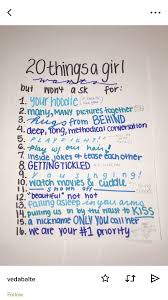 20 things a girl
wants
but won't ask for:
1. your hoodie
2. many, MANY pictures together
3. hugs from BEHIND
4. deep, long, methodical conversation
5. PLAYFIGHTING
6. play w/ our hair!
7. inside jokes & tease each other
8. GETTING TICKLED
9. you singing!
10. watch movies & cuddle
11. shown off
12. "beautiful" not hot
13. falling asleep in your arms
14. pulling us in by the waist to KISS
15. a nickname ONLY YOU call her
16. we are your #1 priority
vedabalte
Follow